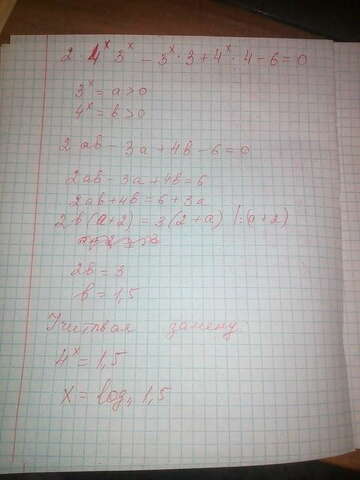 2·4ˣ3ˣ - 3ˣ·3 + 4ˣ·4 - 6 = 0
3ˣ = a > 0
4ˣ = b > 0
2ab - 3a + 4b - 6 = 0
2ab - 3a + 4b = 6
2ab + 4b = 6 + 3a
2b(a+2) = 3(2+a) |:(a+2)
2b = 3
b = 1,5
Учитывая замену
4ˣ = 1,5
x = log₄ 1,5